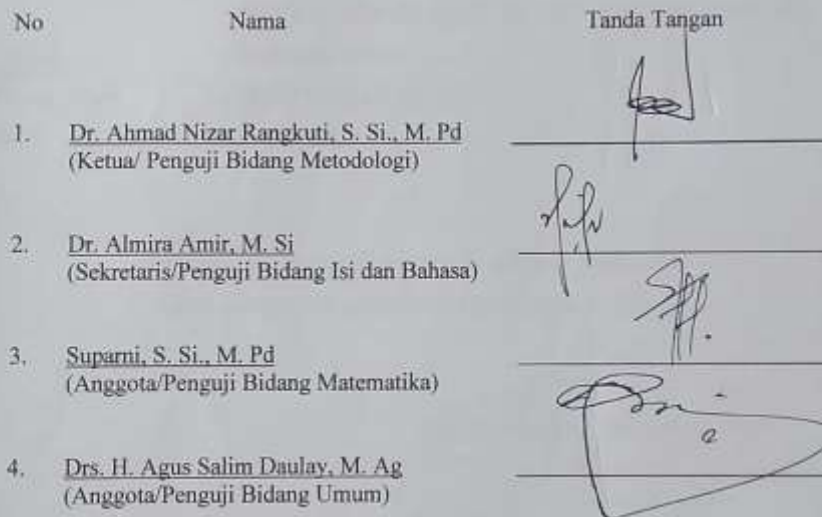 No Nama Tanda Tangan
1. Dr. Ahmad Nizar Rangkuti, S. Si., M. Pd
(Ketua/ Penguji Bidang Metodologi)
2. Dr. Almira Amir, M. Si
(Sekretaris/Penguji Bidang Isi dan Bahasa)
3. Suparni, S. Si., M. Pd
(Anggota/Penguji Bidang Matematika)
4. Drs. H. Agus Salim Daulay, M. Ag
(Anggota/Penguji Bidang Umum)